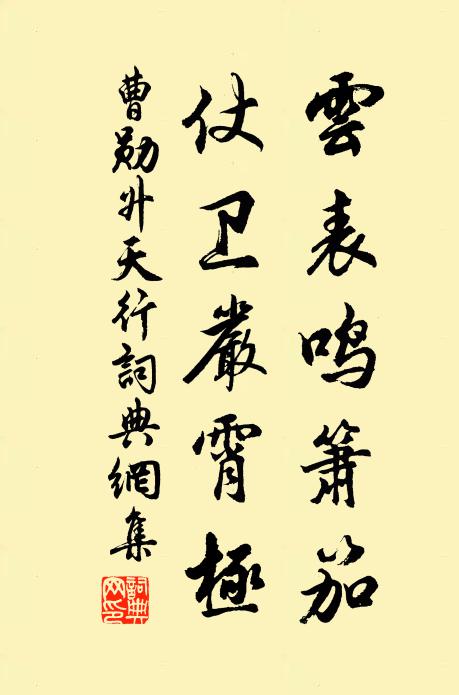 雲表鸣簫笳
仗卫嚴霄極
曹勛升天行詞典網集
詞典网印